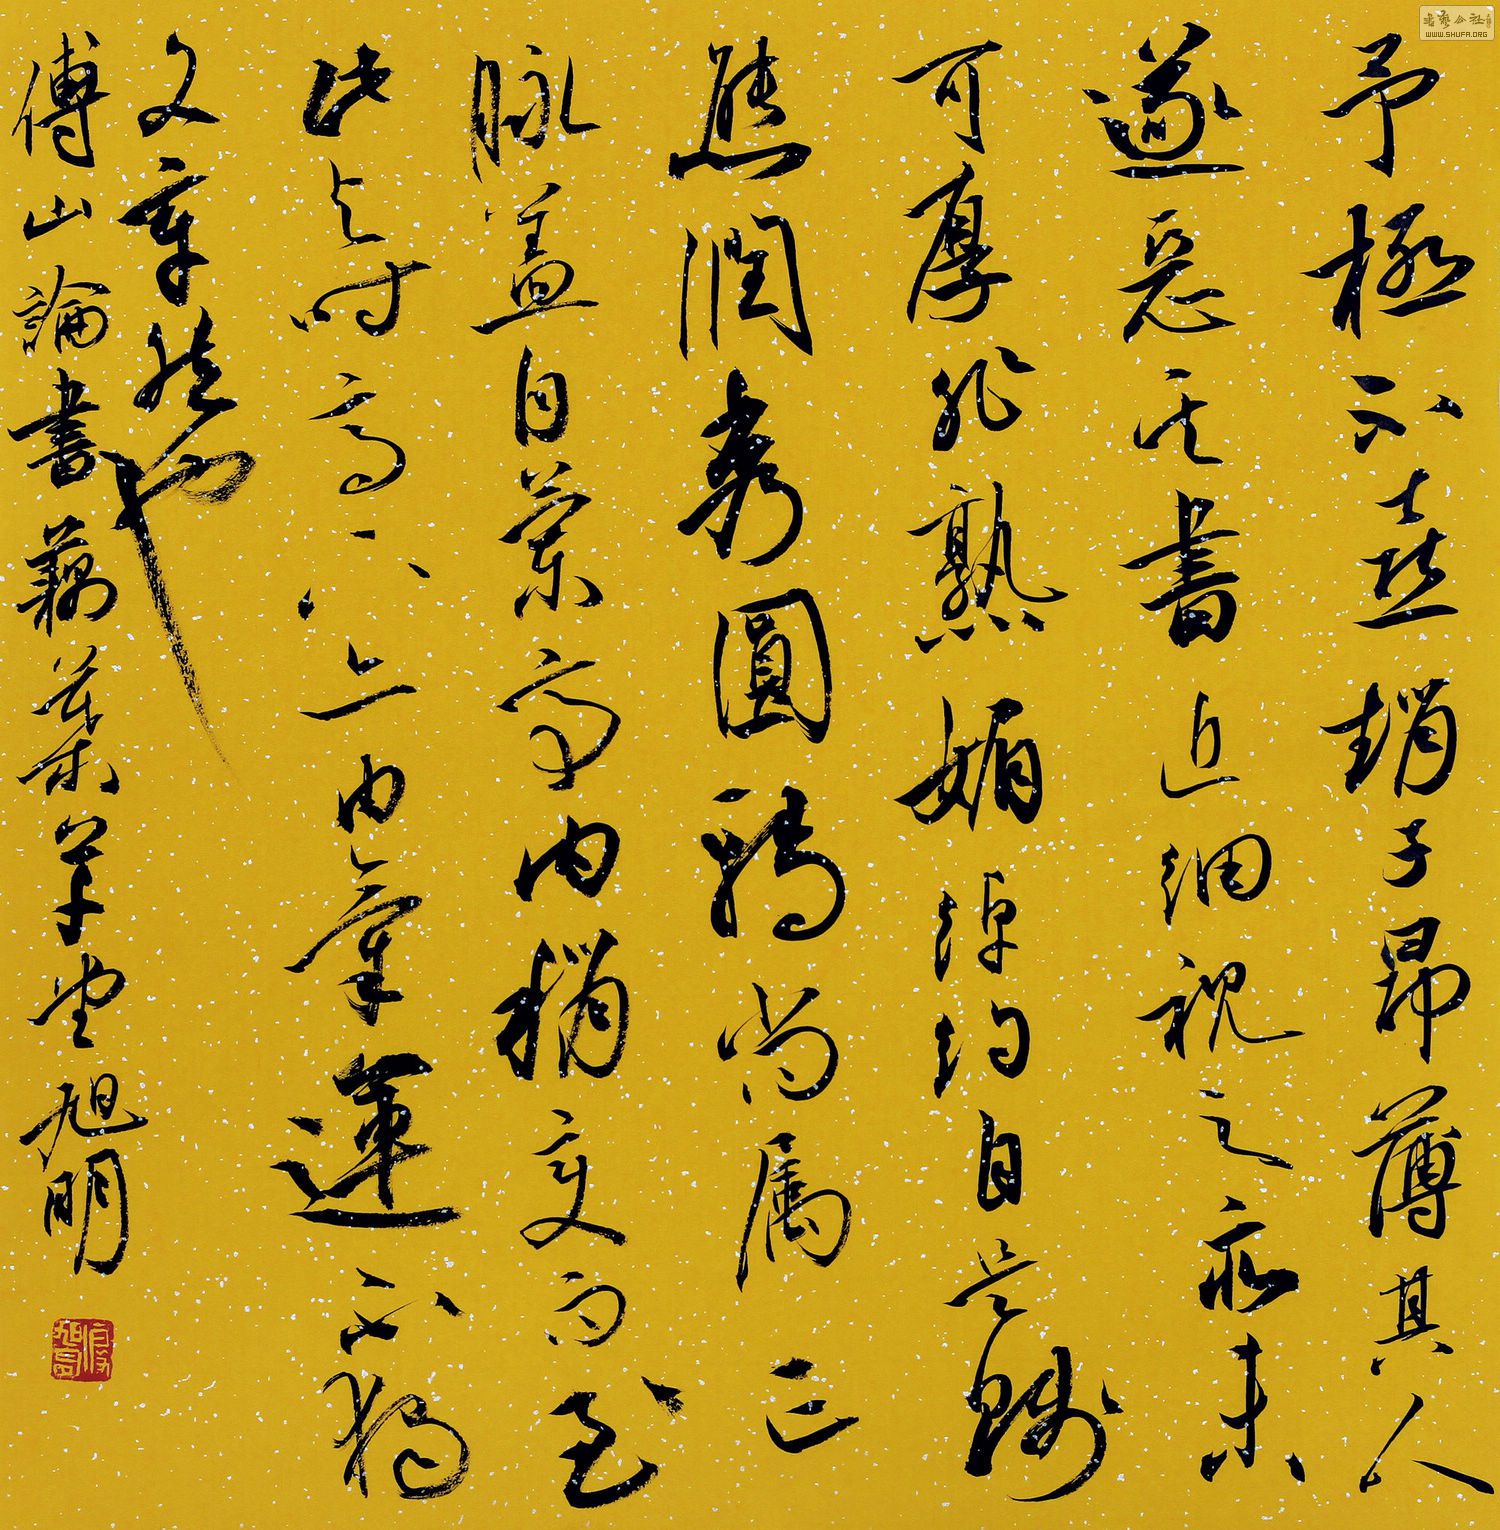 予極不喜趙子昂薄其人
遂惡其書近細視之亦未
可厚非熟媚綽約自是賤
態潤秀圓轉尚属正
脉盖自蘭亭内稍變而至
此与時高下上由氣運不獨
文章然也
傅山論書藕葉草堂旭明
書藝公社
WWW.SHUFA.ORG